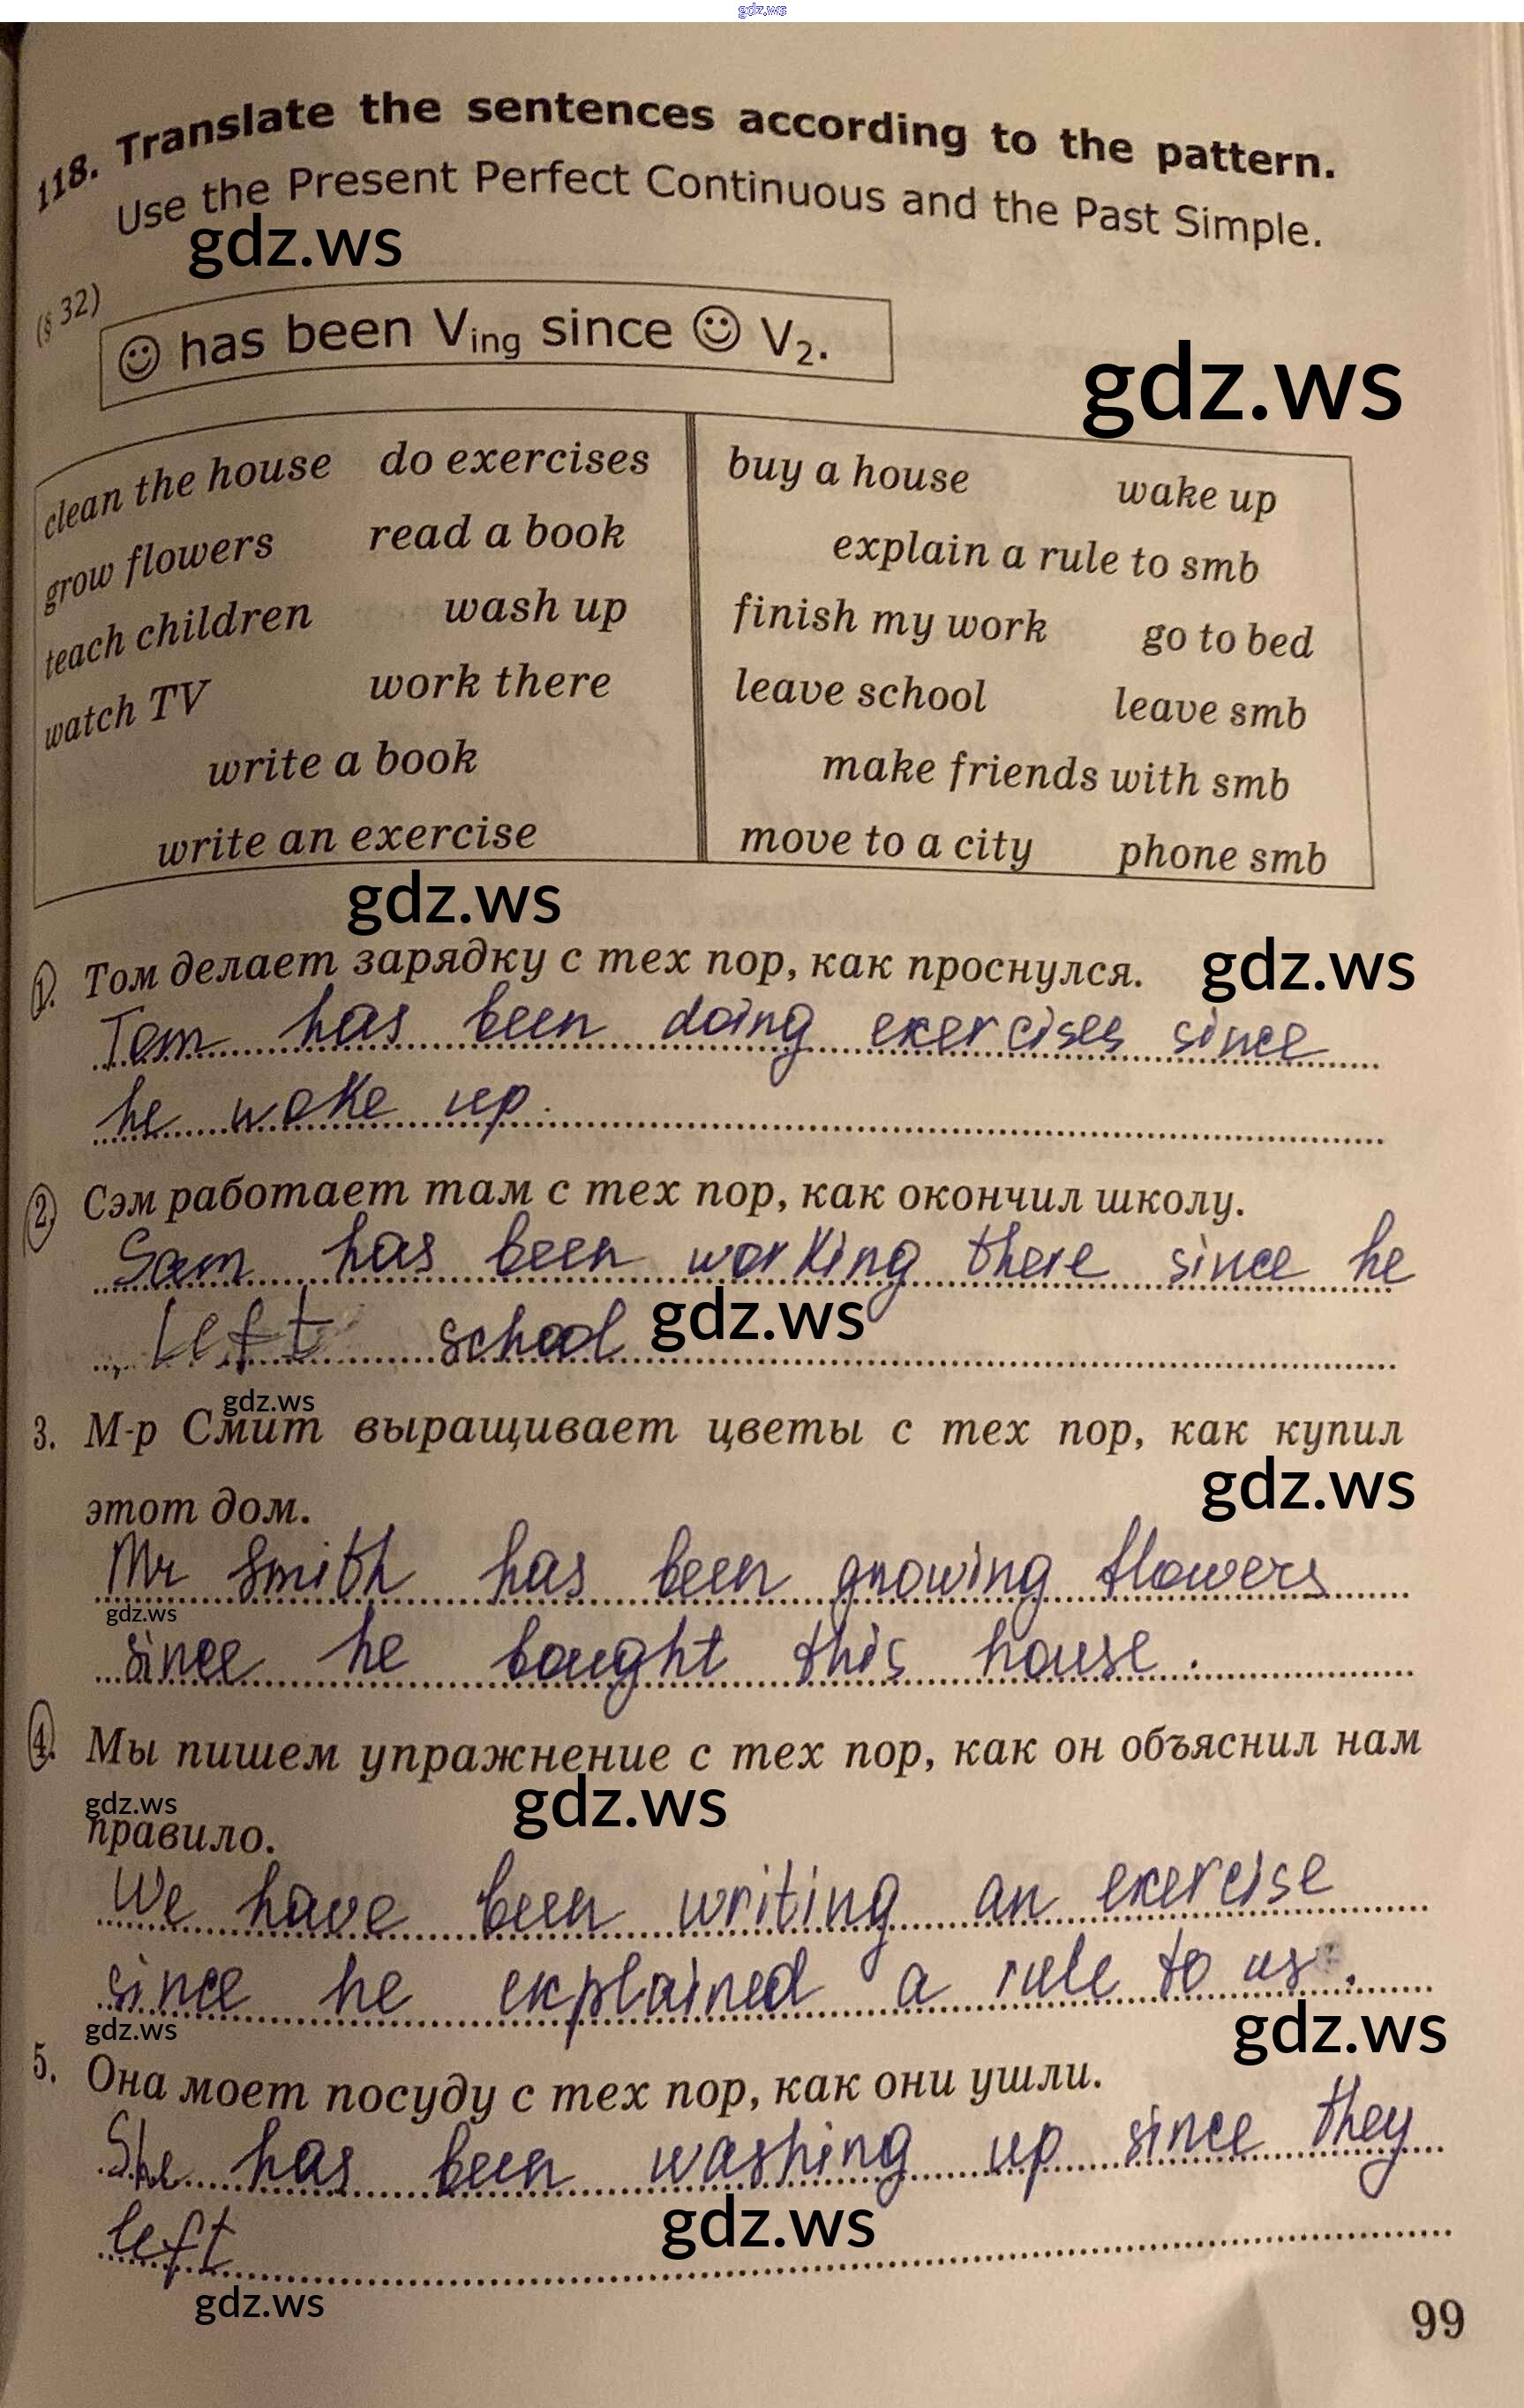 gdz.ws
118. Translate the sentences according to the pattern.
Use the Present Perfect Continuous and the Past Simple.
gdz.ws
(§ 32)
☺ has been Ving since ☺ V2.
gdz.ws
clean the house do exercises
grow flowers read a book
teach children wash up
watch TV work there
write a book
write an exercise
buy a house wake up
explain a rule to smb
finish my work go to bed
leave school leave smb
make friends with smb
move to a city phone smb
gdz.ws
1. Том делает зарядку с тех пор, как проснулся.
gdz.ws
Tom has been doing exercises since
he woke up.
2. Сэм работает там с тех пор, как окончил школу.
Sam has been working there since he
left school
gdz.ws
gdz.ws
3. М-р Смит выращивает цветы с тех пор, как купил
этот дом.
gdz.ws
Mr Smith has been growing flowers
gdz.ws
since he bought this house.
4. Мы пишем упражнение с тех пор, как он объяснил нам
gdz.ws
gdz.ws
правило.
We have been writing an exercise
since he explained a rule to us.
gdz.ws
gdz.ws
5. Она моет посуду с тех пор, как они ушли.
She has been washing up since they
left
gdz.ws
gdz.ws
99